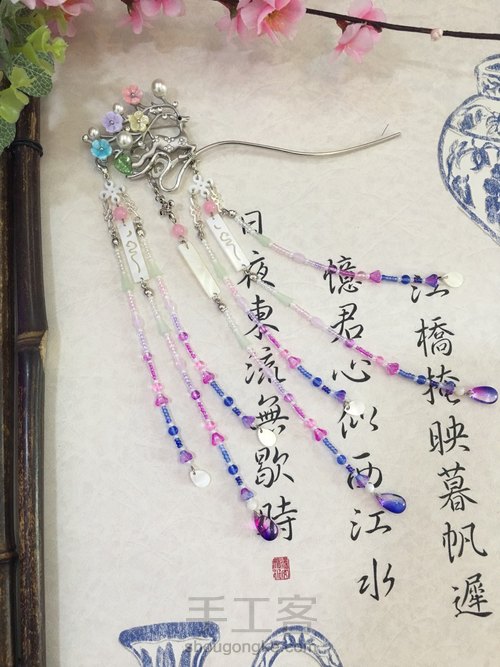 江橋掩映暮帆遲
憶君心似西江水
日夜東流無歇時
手工客
shougongke.com